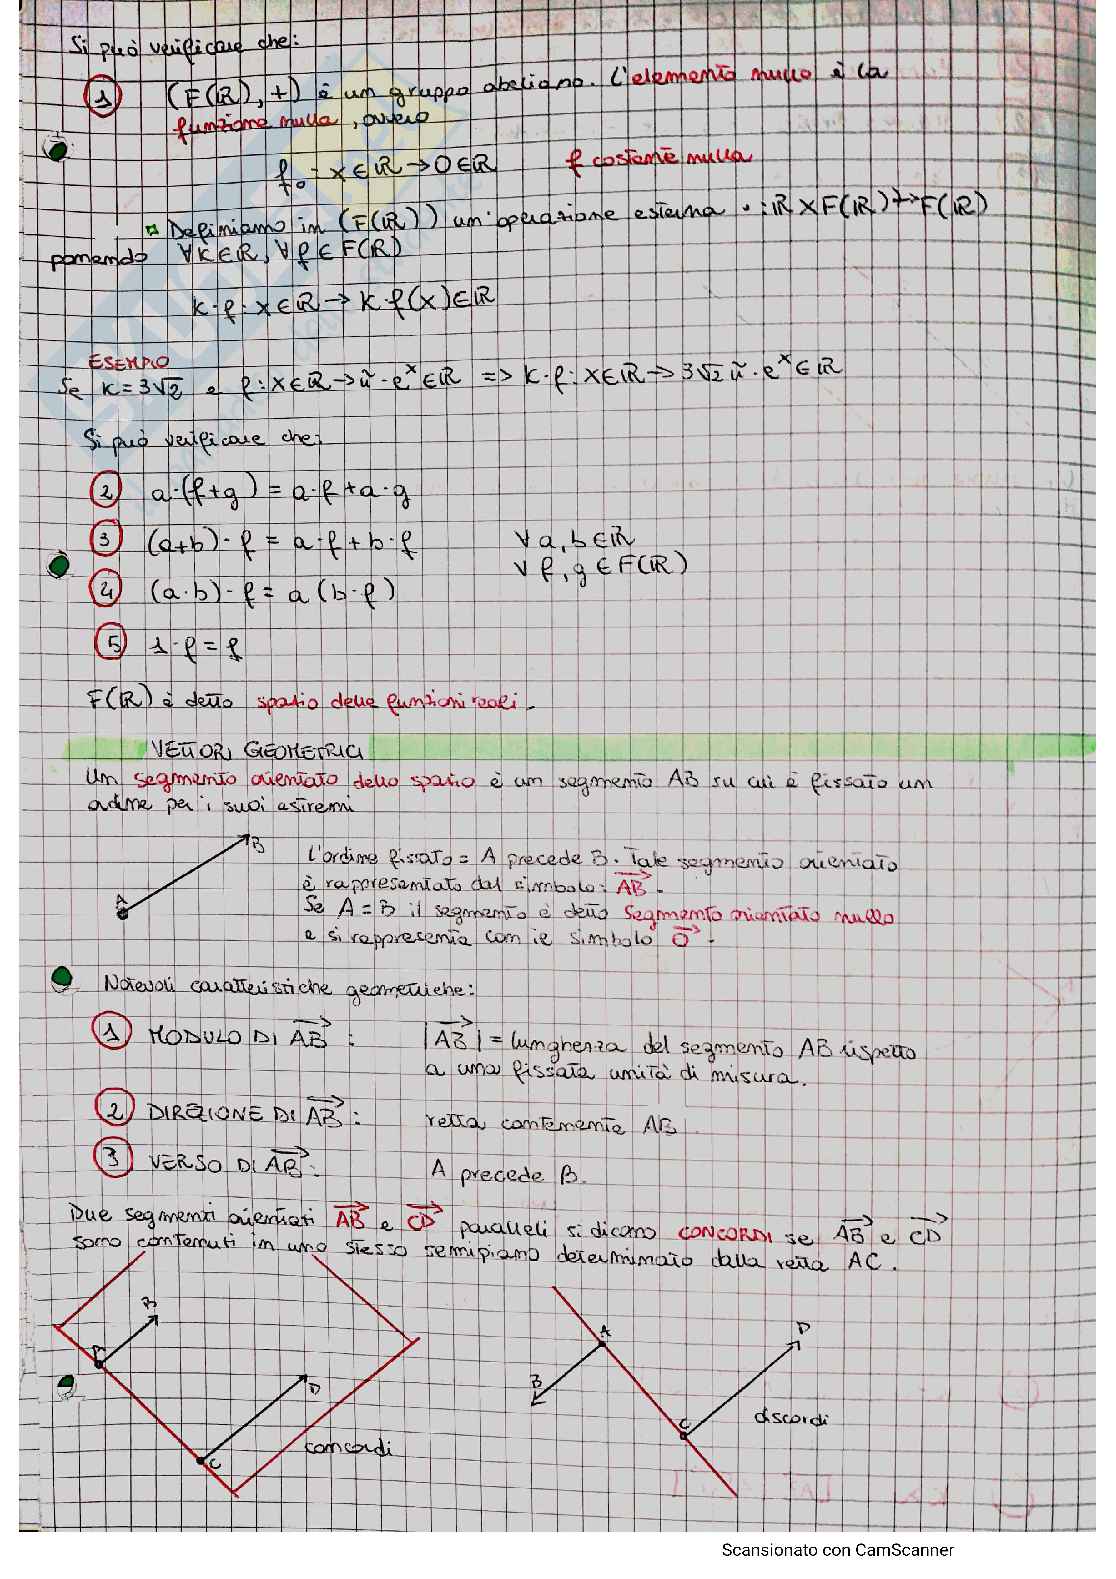 Si può verificare che:
1 (F(ℝ), +) è un gruppo abeliano. L'elemento nullo è la
funzione nulla, ovvero
f₀ : x∈ℝ → 0∈ℝ f costante nulla
Definiamo in (F(ℝ)) un'operazione esterna · : ℝ × F(ℝ) ↦ F(ℝ)
ponendo ∀K∈ℝ, ∀f∈F(ℝ)
K·f : x∈ℝ → K·f(x)∈ℝ
ESEMPIO
Se K = 3√2 e f : x∈ℝ → ·eˣ∈ℝ => K·f : x∈ℝ → 3√2 ·eˣ∈ℝ
Si può verificare che:
2 a·(f+g) = a·f + a·g
3 (a+b)·f = a·f + b·f ∀a,b∈ℝ
∀f,g∈F(ℝ)
4 (a·b)·f = a(b·f)
5 1·f = f
F(ℝ) è detto spazio delle funzioni reali.
VETTORI GEOMETRICI
Un segmento orientato dello spazio è un segmento AB su cui è fissato un
ordine per i suoi estremi
B
A
L'ordine fissato = A precede B. Tale segmento orientato
è rappresentato dal simbolo: A⃗B⃗.
Se A = B il segmento è detto segmento orientato nullo
e si rappresenta con il simbolo O⃗.
Notevoli caratteristiche geometriche:
1 MODULO DI A⃗B⃗ : |A⃗B⃗| = lunghezza del segmento AB rispetto
a una fissata unità di misura.
2 DIREZIONE DI A⃗B⃗ : retta contenente AB
3 VERSO DI A⃗B⃗ : A precede B.
Due segmenti orientati A⃗B⃗ e C⃗D⃗ paralleli si dicono CONCORDI se A⃗B⃗ e C⃗D⃗
sono contenuti in uno stesso semipiano determinato dalla retta AC.
B
A
D
C
concordi
A
B
D
C
discordi
Scansionato con CamScanner